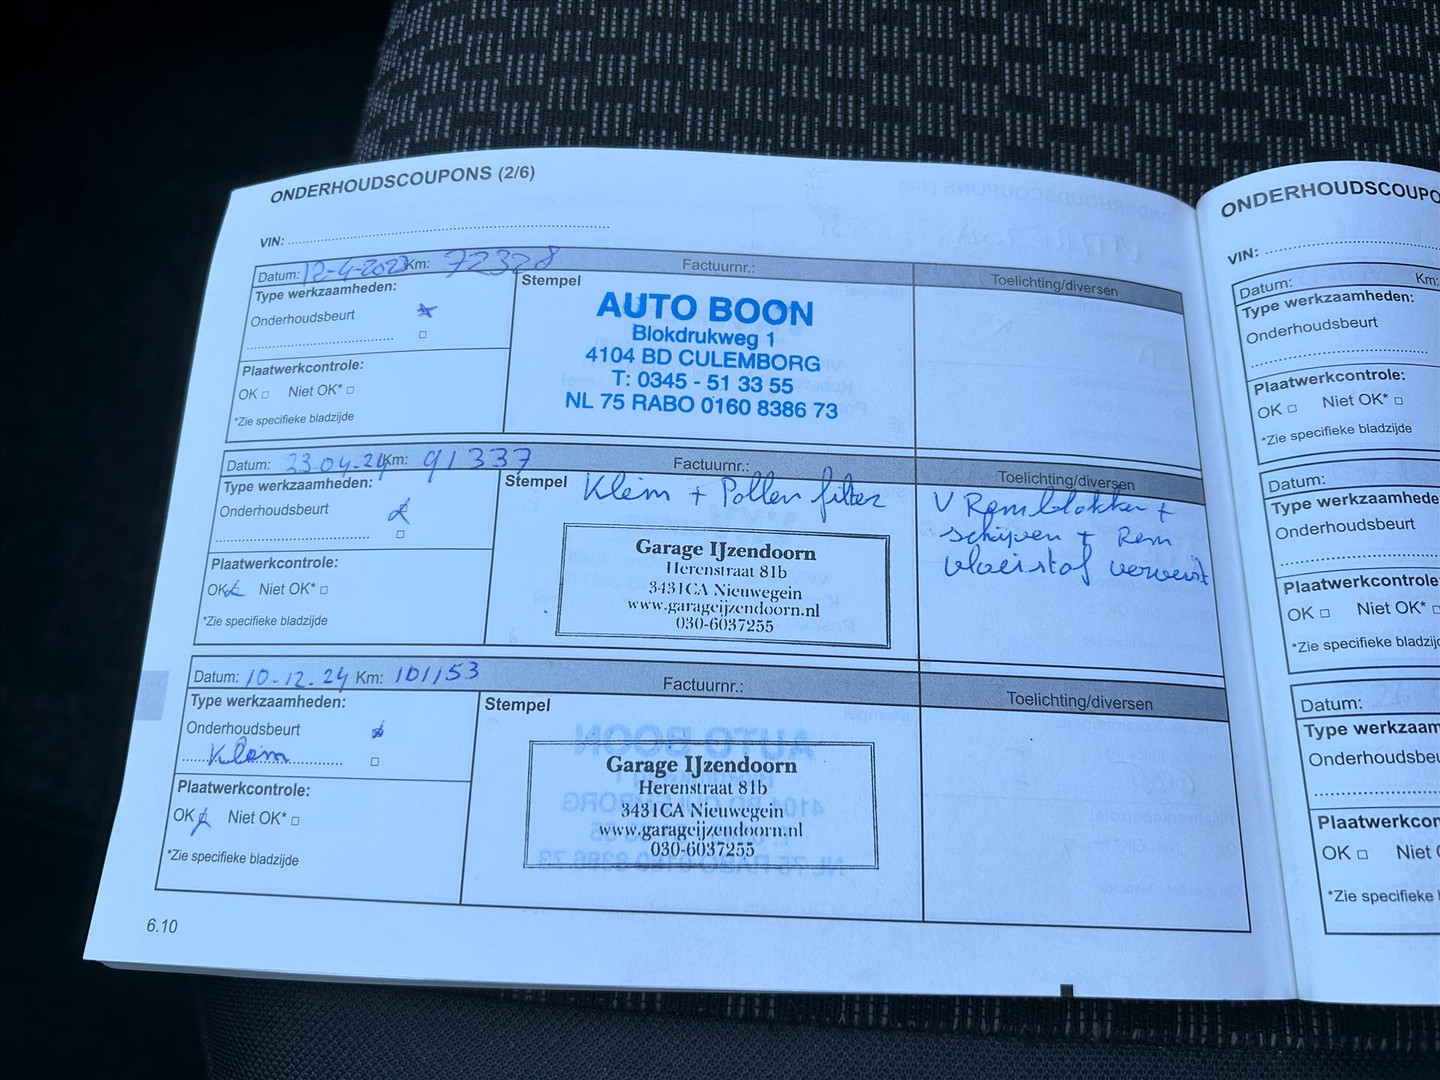 ONDERHOUDSCOUPONS (2/6)
VIN:
Datum: 12-4-2023 Km: 72328 Factuurnr.: Toelichting/diversen
Type werkzaamheden:
Onderhoudsbeurt
Plaatwerkcontrole:
OK □ Niet OK* □
*Zie specifieke bladzijde
Stempel
AUTO BOON
Blokdrukweg 1
4104 BD CULEMBORG
T: 0345 - 51 33 55
NL 75 RABO 0160 8386 73
Datum: 23.04.24 Km: 91337 Factuurnr.: Toelichting/diversen
Type werkzaamheden:
Onderhoudsbeurt
Plaatwerkcontrole:
OK Niet OK* □
*Zie specifieke bladzijde
Stempel Klein + Pollen filter
Garage IJzendoorn
Herenstraat 81b
3431CA Nieuwegein
www.garageijzendoorn.nl
030-6037255
V Remblokken +
schijven + Rem
vloeistof ververst
Datum: 10.12.24 Km: 101153 Factuurnr.: Toelichting/diversen
Type werkzaamheden:
Onderhoudsbeurt
Klein
Plaatwerkcontrole:
OK Niet OK* □
*Zie specifieke bladzijde
Stempel
Garage IJzendoorn
Herenstraat 81b
3431CA Nieuwegein
www.garageijzendoorn.nl
030-6037255
6.10
ONDERHOUDSCOUPO
VIN:
Datum: Km:
Type werkzaamheden:
Onderhoudsbeurt
Plaatwerkcontrole:
OK □ Niet OK* □
*Zie specifieke bladzijde
Datum:
Type werkzaamhede
Onderhoudsbeurt
Plaatwerkcontrole
OK □ Niet OK* □
*Zie specifieke bladzij
Datum:
Type werkzaam
Onderhoudsbeu
Plaatwerkcor
OK □ Niet
*Zie specifieke b